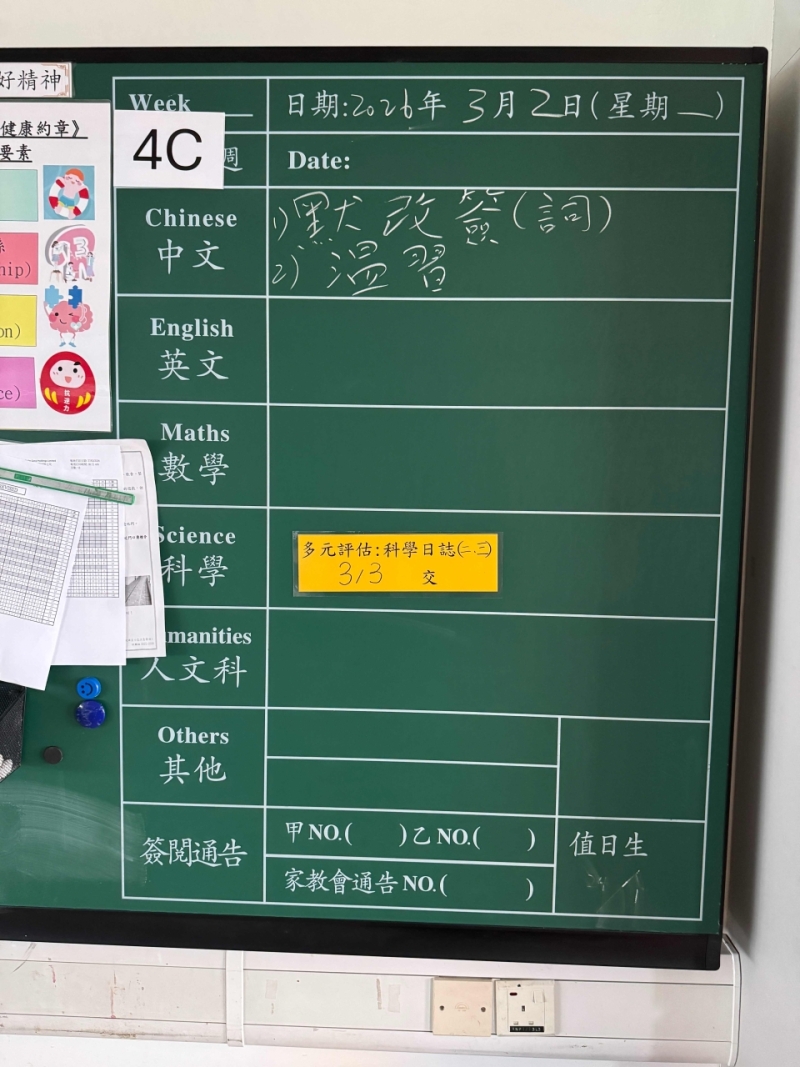 好精神
健康約章》
要素
hip)
on)
ce)
Week
4C
週
日期:2026年 3月2日(星期一)
Date:
Chinese
中文
1) 默改簽(詞)
2) 溫習
English
英文
Maths
數學
Science
科學
多元評估:科學日誌(二、三)
3/3 交
umanities
人文科
Others
其他
簽閱通告
甲NO.( )乙NO.( )
家教會通告NO.( )
值日生